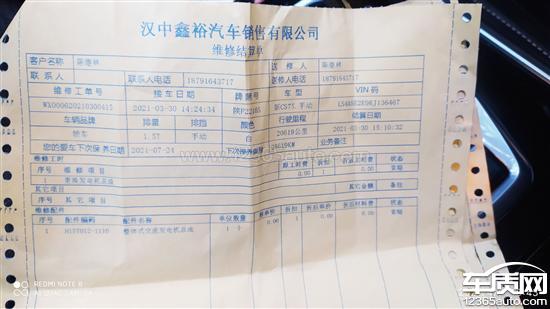 汉中鑫裕汽车销售有限公司
维修结算单
客户名称 送修人
联系人 联系人电话 18791643717 送修人电话 18791643717
维修工单号 接车日期 牌照号 车型 VIN码
2021-03-30 14:24:34 新CS75.手动
车辆品牌 排量 排挡 颜色 行驶里程 结算日期
轿车 1.5T 手动 白 20619公里 2021-03-30 15:10:32
您的爱车下次保养日期 2021-07-24 业务备注
维修工时
序号 维修项目 派工时费 折扣 折后工时费 状态
1 更换发电机总成 0.00 1 0.00 索赔
其它项目
序号 其它项目 其它金额 备注
维修配件
序号 配件编码 配件名称 单位 数量 单价 折扣 折后单价 折后材料费 状态
1 整体式交流发电机总成 1 0.00 1 0.00 0.00 索赔
www.12365auto.com
REDMI NOTE 8
AI QUAD CAMERA
车质网
12365auto.com